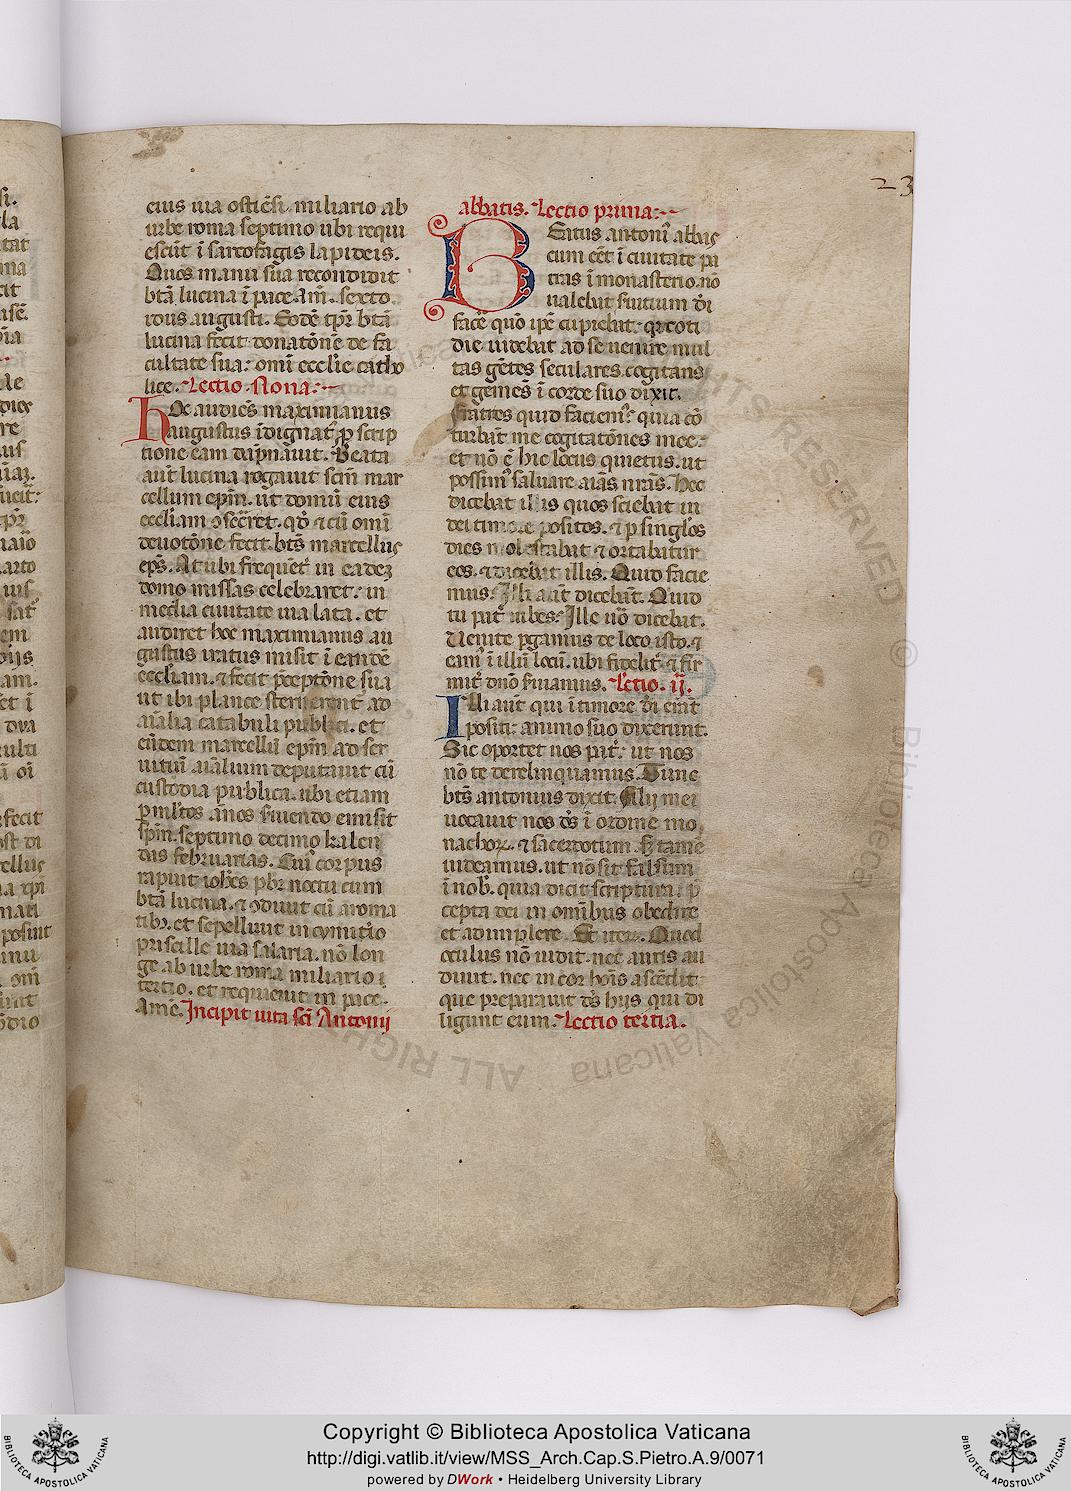 23
eius uia ostiēsi. miliario ab
urbe roma septimo ubi requi
escūt ī sarcofagis lapideis.
Quos manu sua recondidit
btā lucina ī pace. Am̄. sexto
idus augusti. Eodē tpr̄ btā
lucina fecit donatōnē de fa
cultate sua: omī ecclīe catho
lice. Lectio Nona:
Hoc audiēs maximianus
augustus īdignat᷑ p̄ scrip
tione eam dāpnauit. Beata
aut̄ lucina rogauit scm̄ mar
cellum epm̄. ut domū eius
eccliam ꝯsecͬret. qđ ⁊ cū omī
deuotōne fecit. bt̄s marcellus
ep̄s. At ubi frequēt᷑ in eadeʒ
domo missas celebraret. in
media ciuitate uia lata. et
audiret hoc maximianus au
gustus iratus misit ī eandē
eccliam. ⁊ fecit p̄ceptōne sua
ut ibi plance sternerent᷑ ad
aīalia catabuli publici. et
eūdem marcellū epm̄ ad ser
uitiū aīalium deputauit cū
custodia publica. ubi etiam
p̱ mltos ānos s̄uiendo emisit
spm̄. septimo decimo kalen
das februarias. Cui᷒ corpus
rapuit ioh̄es pbr̄ noctu cum
btā lucina. ⁊ ꝯdiuit cū aroma
tibꝫ. et sepelliuit in cymit̄io
priscille uia salaria. nō lon
ge ab urbe roma miliario i
tertio. et requieuit in pace.
Amē. Incipit uita scī Antonij
abbatis. Lectio prima:
Beatus antoni᷒ abbas
cum eēt ī ciuitate pa
tras ī monasterio. nō
ualebat s̄uitium d̄i
facē quō ip̄e cupiebat: qr̄ coti
die uidebat ad se uenire mul
tas gētes seculares. cogitans
et gemēs ī corde suo dixit.
Fratres quid faciem᷒: quia cō
turbāt me cogitatōnes mee:
et nō ē hic locus quietus. ut
possim᷒ saluare aīas nr̄as. Hec
dicebat illis quos sciebat in
dei timore positos. ⁊ p̱ singlos
dies molestabat ⁊ ortabatur
eos. ⁊ dicebat illis. Quid facie
mus: Illi aūt dicebāt. Quid
tu pat᷑ iubes: Ille u̅o dicebat.
Uenite p̱gamus de loco isto. ⁊
eam᷒ ī illū locū. ubi fidelit᷑ ⁊ fir
mit᷑ dn̄o s̄uiamus. Lc̄tio. ij.
Illi aūt qui ī timore d̄i erāt
positi: animo suo dixerunt.
Sic oportet nos pat᷑: ut nos
nō te derelinquamus. Tunc
bt̄s antonius dixit. Filij mei
uocauit nos d̄s ī ordinē mo
nachoꝝ. ⁊ sacerdotum. sꝫ tamē
uideamus. ut nō sit falsum
ī nob᷒. quia dicit scriptura. p̄
cepta dei in omībus obedite
et adimplete. Et iteꝝ. Quod
oculus nō uidit. nec auris au
diuit. nec in cor hoīs ascēdit:
que preparauit d̄s hijs qui di
ligunt eum. Lectio tertia.
ALL RIGHTS RESERVED
© Biblioteca Apostolica Vaticana
Copyright © Biblioteca Apostolica Vaticana
http://digi.vatlib.it/view/MSS_Arch.Cap.S.Pietro.A.9/0071
powered by DWork • Heidelberg University Library
BIBLIOTECA APOSTOLICA VATICANA
BIBLIOTECA APOSTOLICA VATICANA